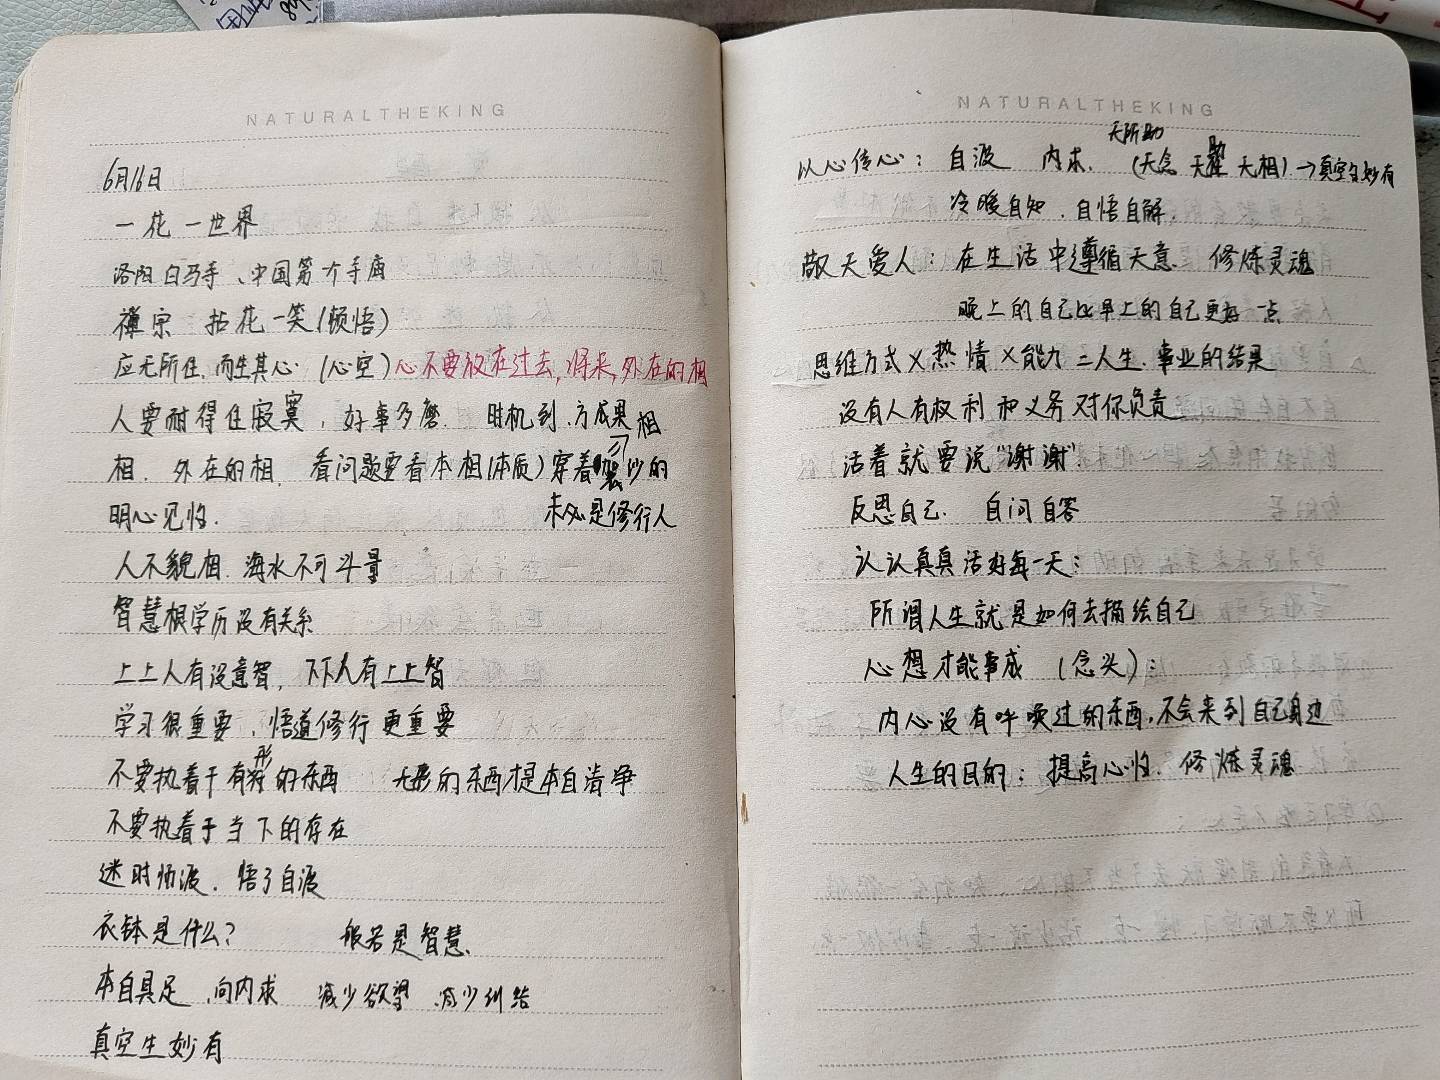 NATURALTHEKING
6月16日
一花一世界
洛阳白马寺、中国第一个寺庙
禅宗 拈花一笑(顿悟)
应无所住,而生其心.(心空)心不要放在过去,将来,外在的相
人要耐得住寂寞,好事多磨. 时机到.方成果
相
相. 外在的相. 看问题要看本相(本质)穿着袈沙的
明心见性.
未必是修行人
人不貌相.海水不可斗量
智慧根学历没有关系
上上人有没意智,下下人有上上智
学习很重要,悟道修行更重要
不要执着于有形的东西 无形的东西才是本自清净
不要执着于当下的存在
迷时师渡.悟了自渡
衣钵是什么? 般若是智慧.
本自具足 .向内求 减少欲望.减少纠结
真空生妙有
NATURALTHEKING
无所助
以心传心: 自渡 内求. (无念 无 无相)→真空生妙有
冷暖自知.自悟自解.
敬天爱人: 在生活中遵循天意. 修炼灵魂
晚上的自己比早上的自己更好一点
思维方式×热情×能力=人生.事业的结果
没有人有权利和义务对你负责
活着就要说"谢谢"!
反思自己. 自问自答
认认真真活好每一天:
所谓人生就是如何去描绘自己
心想才能事成 (念头):
内心没有呼唤过的东西,不会来到自己身边
人生的目的: 提高心性. 修炼灵魂